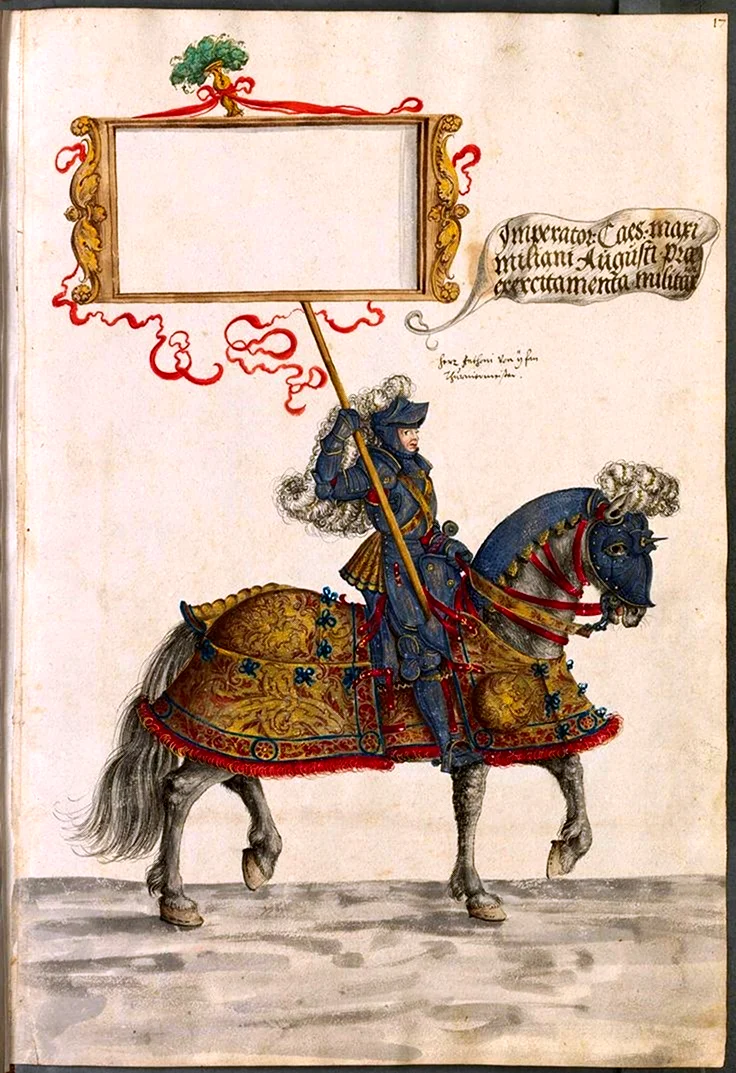 17
Imperator: Caes: maxi
miliani Augusti Præ
exercitamenta militar
herr Anthoni von yfan
Thurniermeister.